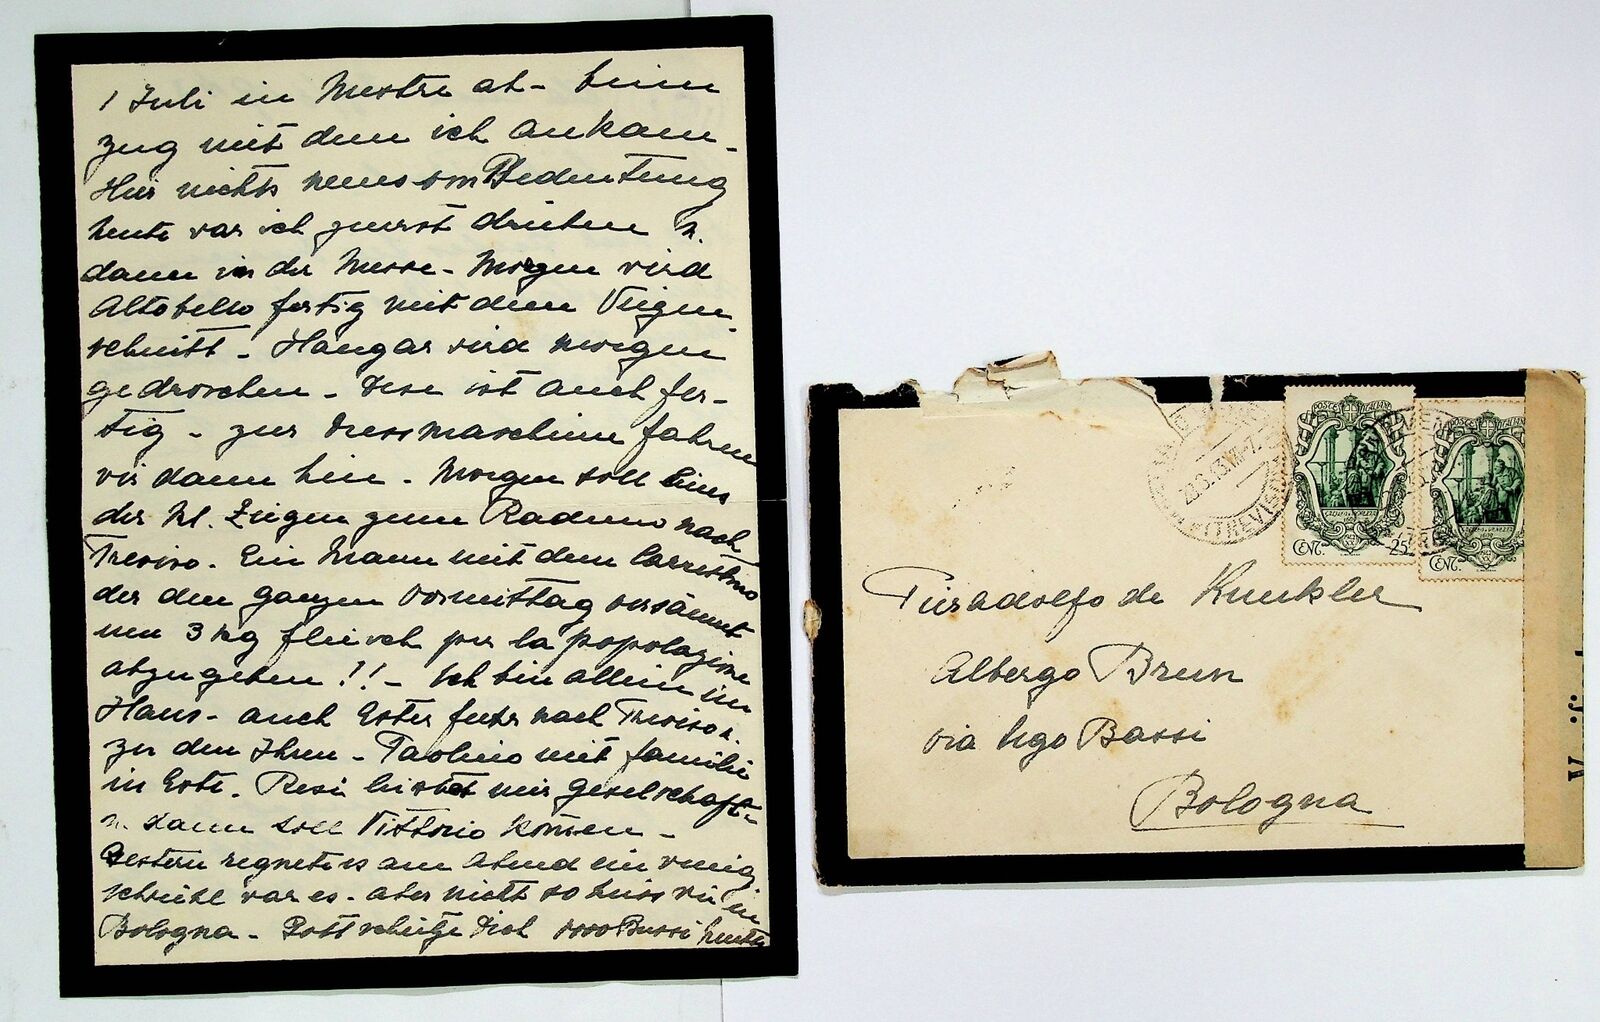 1 Juli in Mestre ab - beim
zug mit dem ich ankam -
Hier nichts neues von Bedeutung
heute war ich zuerst drüben u.
dann in der Messe - Morgen wird
Altobello fertig mit dem Weizen
schnitt - Hangar wird morgen
gedroschen - Dese ist auch fer-
tig - zur Dreschmaschine fahren
wir dann hin - Morgen soll Eine
der kl. Ziegen zum Raduno nach
Treviso. Ein Mann mit dem Carrettino
der den ganzen Vormittag versäumt
um 3 kg fleisch per la popolazione
abzugeben !! - Ich bin allein im
Haus - auch Ester fuhr nach Treviso
zu den Ihren - Paolino mit familie
in Este. Resi leistet mir gesellschaft
u. dann soll Vittorio komen -
Gestern regnete es am Abend ein wenig
schwühl war es - aber nicht so heiss wie in
Bologna - Gott schütze Dich 1000 Bussi heute
POSTE ITALIANE
CENT. 25
POSTE ITALIANE
CENT.
(TREVISO)
Pieradolfo de Kunkler
Albergo Brun
via Ugo Bassi
Bologna